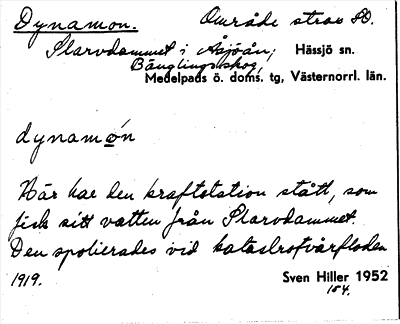 Dynamon. Område strax SO.
Plarvdammet i Åsjöån; Hässjö sn.
Bänglingsskog,
Medelpads ö. doms. tg, Västernorrl. län.
dynamo̲n
Här har den kraftstation stått, som
fick sitt vatten från Plarvdammet.
Den spolierades vid katastrofvårfloden
1919.
Sven Hiller 1952
154.